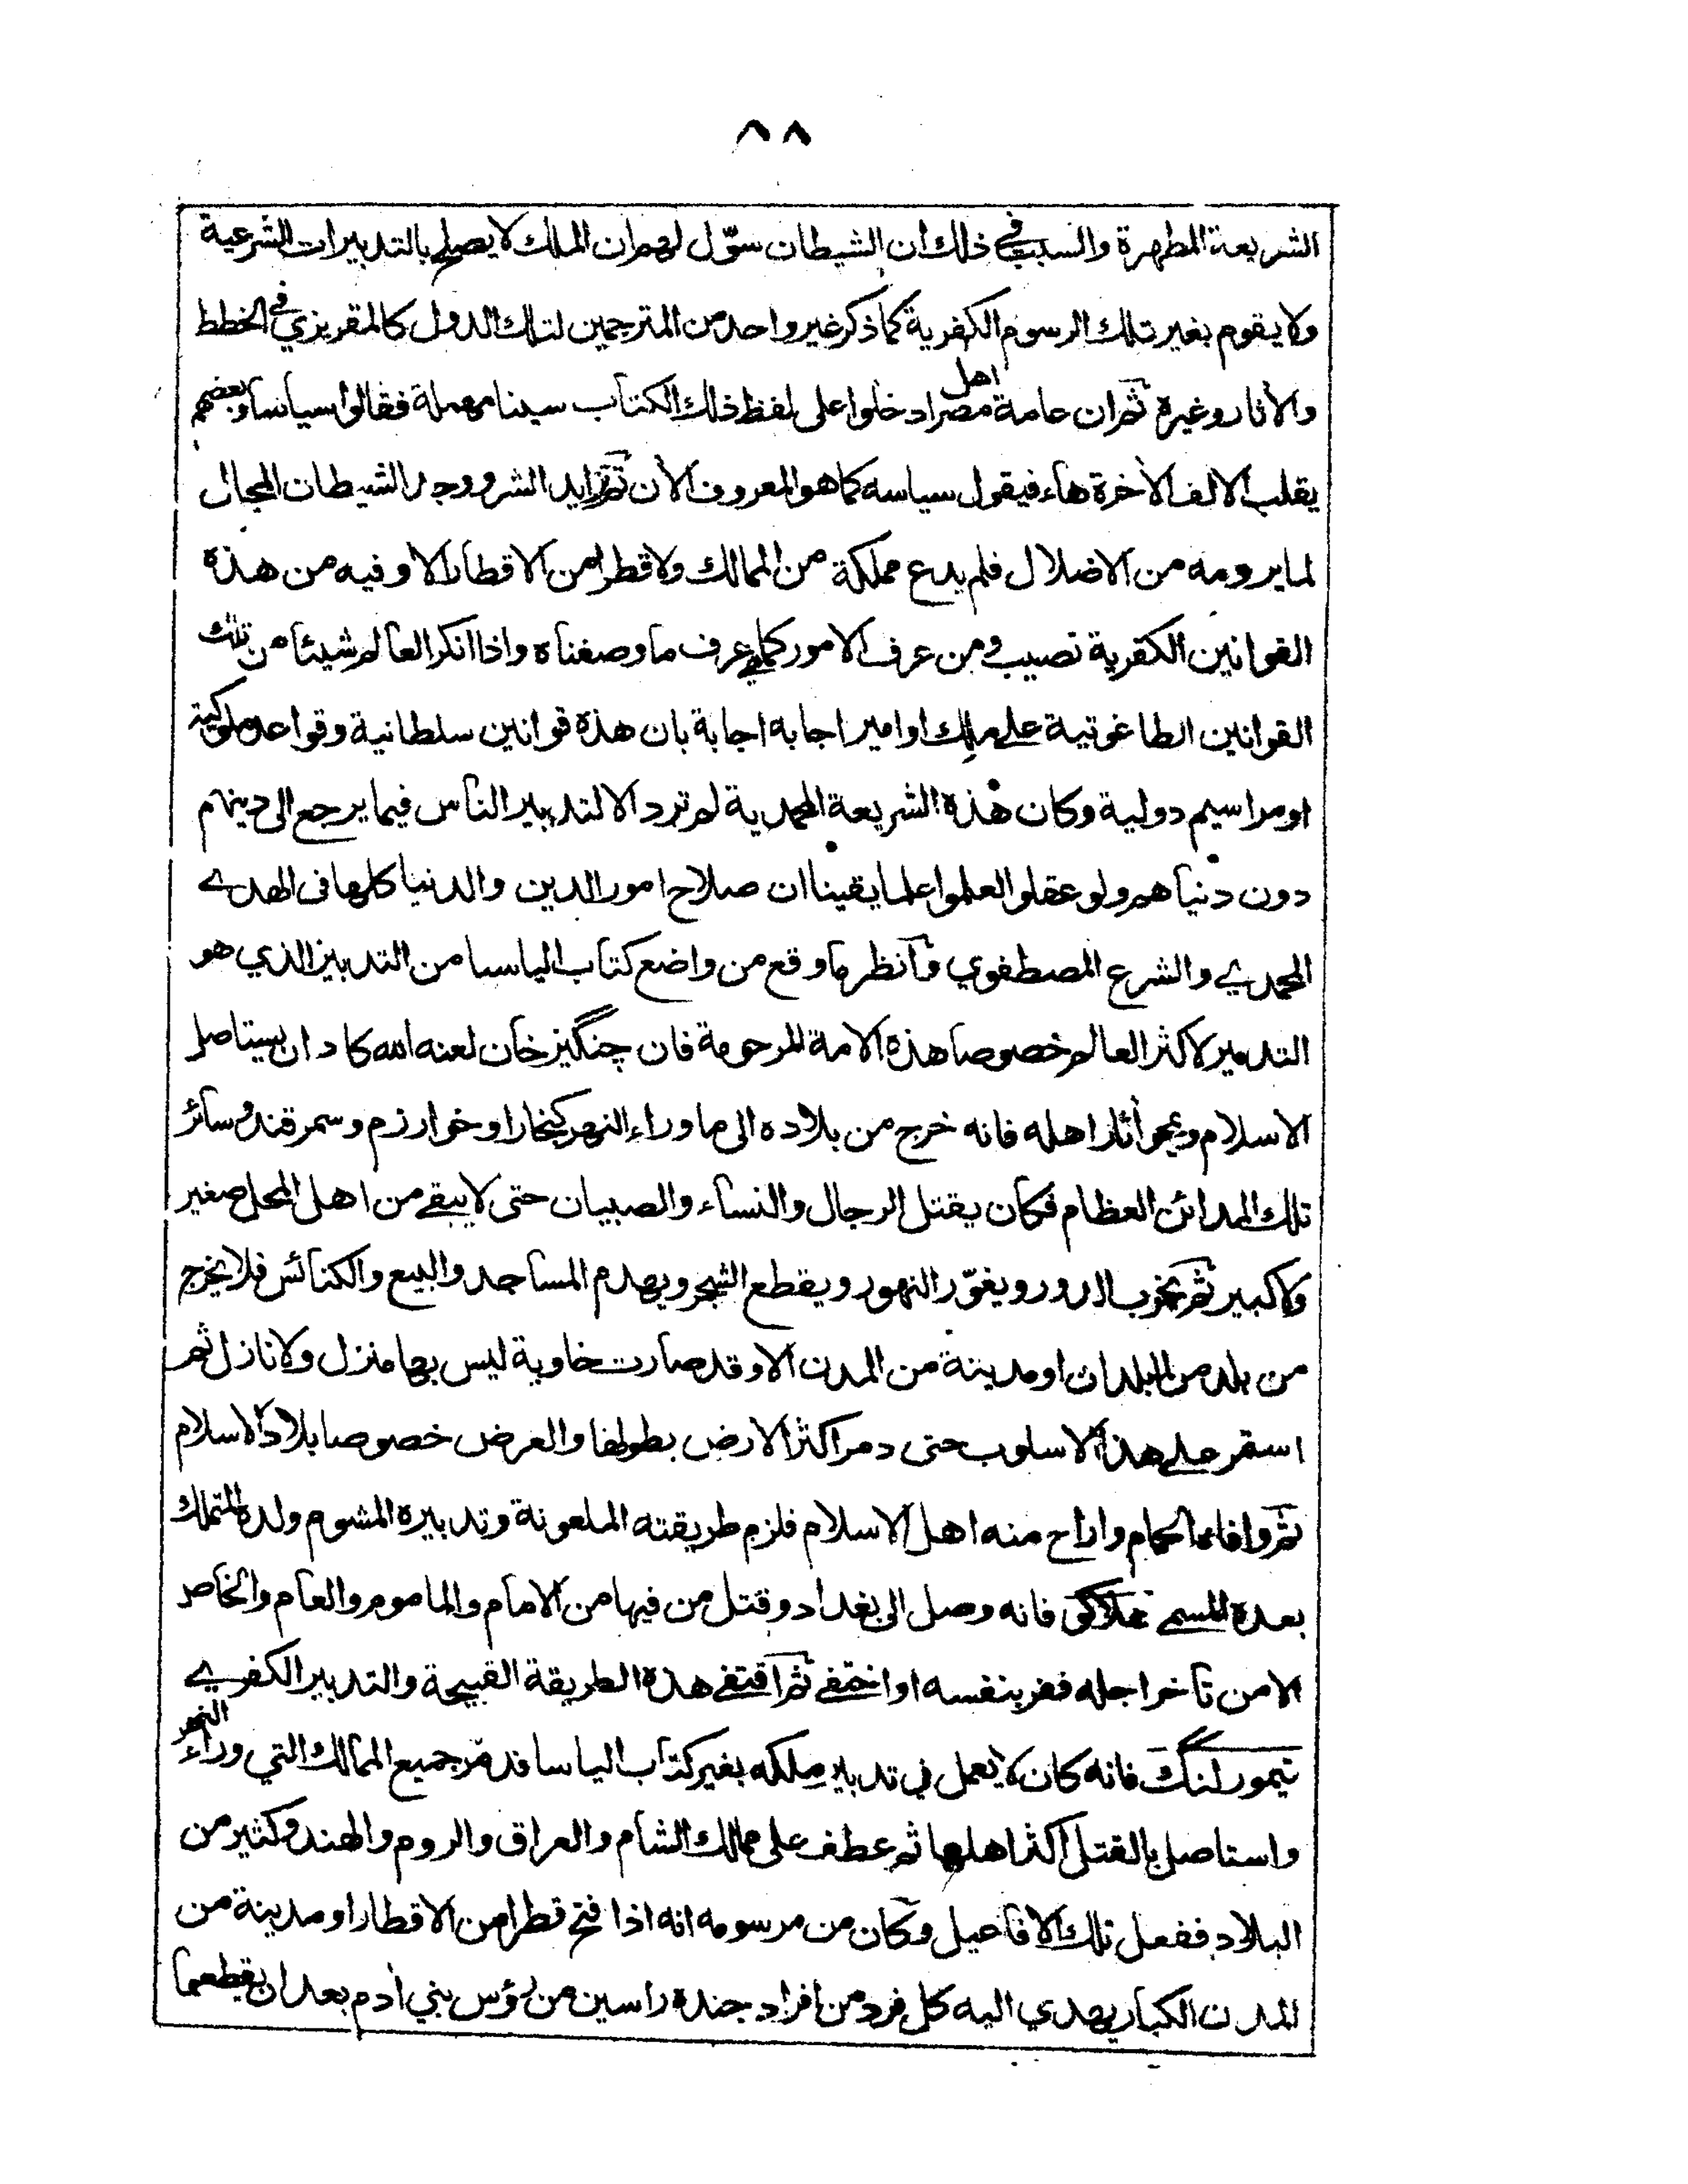 ٨٨
الشريعة المطهرة والسبب في ذلك ان الشيطان سوّل لهم ان الملك لا يصلح بالتدبيرات الشرعية
ولا يقوم بغير تلك الرسوم الكفرية كما ذكر غير واحد من المترجمين لتلك الدول كالمقريزي في الخطط
والآثار وغيره ثم ان عامة اهل مصر ادخلوا على لفظ ذلك الكتاب سينا مهملة فقالوا سياسا وبعضهم
يقلب الالف الاخرة هاء فيقول سياسه كما هو المعروف الأن ثم تزايد الشر ووجد الشيطان المجال
لما يرومه من الاضلال فلم يدع مملكة من الممالك ولا قطرا من الاقطار الا وفيه من هذه
القوانين الكفرية نصيب ومن عرف الامور كما هي عرف ما وصفناه واذا انكر العالم شيئا من تلك
القوانين الطاغوتية على ملك او امير اجابه اجابة بان هذه قوانين سلطانية وقواعد ملوكية
او مراسيم دولية وكان هذه الشريعة المحمدية لم ترد الا لتدبير الناس فيما يرجع الى دينهم
دون دنياهم ولو عقلوا لعلموا علما يقينا ان صلاح امور الدين والدنيا كلها في الهدى
المحمدي والشرع المصطفوي فانظر ما وقع من واضع كتاب الياسا من التدبير الذي هو
التدمير لاكثر العالم خصوصا هذه الامة المرحومة فان چنگيز خان لعنه الله كاد ان يستاصل
الاسلام ويمحو أثار اهله فانه خرج من بلاده الى ما وراء النهر كبخارا وخوارزم وسمرقند وسائر
تلك المدائن العظام فكان يقتل الرجال والنساء والصبيان حتى لا يبقى من اهل المحل صغير
ولا كبير ثم يخرب الدور ويغوّر النهور ويقطع الشجر ويهدم المساجد والبيع والكنائس فلا يخرج
من بلد من البلدان او مدينة من المدن الا وقد صارت خاوية ليس بها منزل ولا نازل ثم
استمر على هذا الاسلوب حتى دمر اكثر الارض بطولها والعرض خصوصا بلاد الاسلام
ثم وافاه الحمام واراح منه اهل الاسلام فلزم طريقته الملعونة وتدبيره المشوم ولده المتملك
بعده المسمى هلاكو فانه وصل الى بغداد وقتل من فيها من الامام والماموم والعام والخاص
الا من تاخر اجله ففر بنفسه او اختفى ثم اقتفى هذه الطريقة القبيحة والتدبير الكفري
تيمور لنگ فانه كان لا يعمل في تدبير ملكه بغير كتاب الياسا فدمّر جميع الممالك التي وراء النهر
واستاصل بالقتل اكثر اهلها ثم عطف على ممالك الشام والعراق والروم والهند وكثير من
البلاد ففعل تلك الافاعيل وكان من مرسومه انه اذا فتح قطرا من الاقطار او مدينة من
المدن الكبار يهدي اليه كل فرد من افراد جنده راسين من رؤس بني أدم بعد ان يقطعها